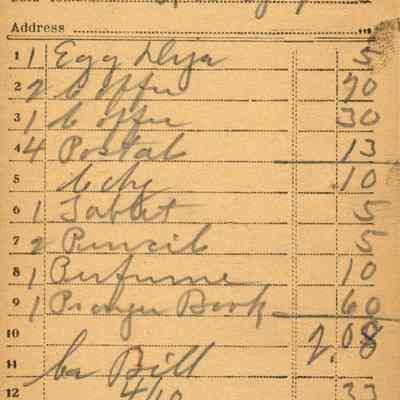 Address
1 1 Egg Dye 5
2 2 Coffee 70
3 1 Coffee 30
4 4 Postal 13
5 10
6 1 Tablet 5
7 2 Pencils 5
8 1 Perfume 10
9 1 Prayer Book 60
10 2.08
11 Bill
12 4/10 33